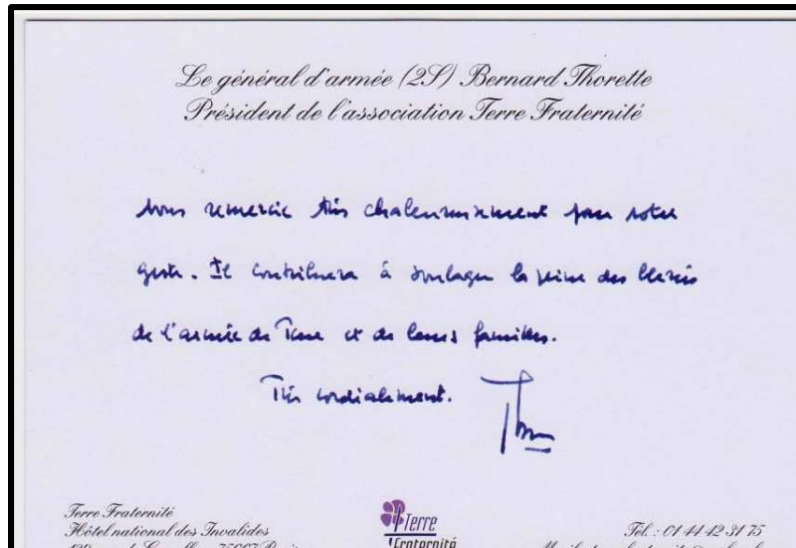 Le général d'armée (2S) Bernard Thorette
Président de l'association Terre Fraternité
vous remercie très chaleureusement pour votre
geste. Il contribuera à soulager la peine des blessés
de l'armée de Terre et de leurs familles.
Très cordialement.
Terre Fraternité
Hôtel national des Invalides
75007 Paris
Terre
Fraternité
Tél. : 01 44 42 31 75